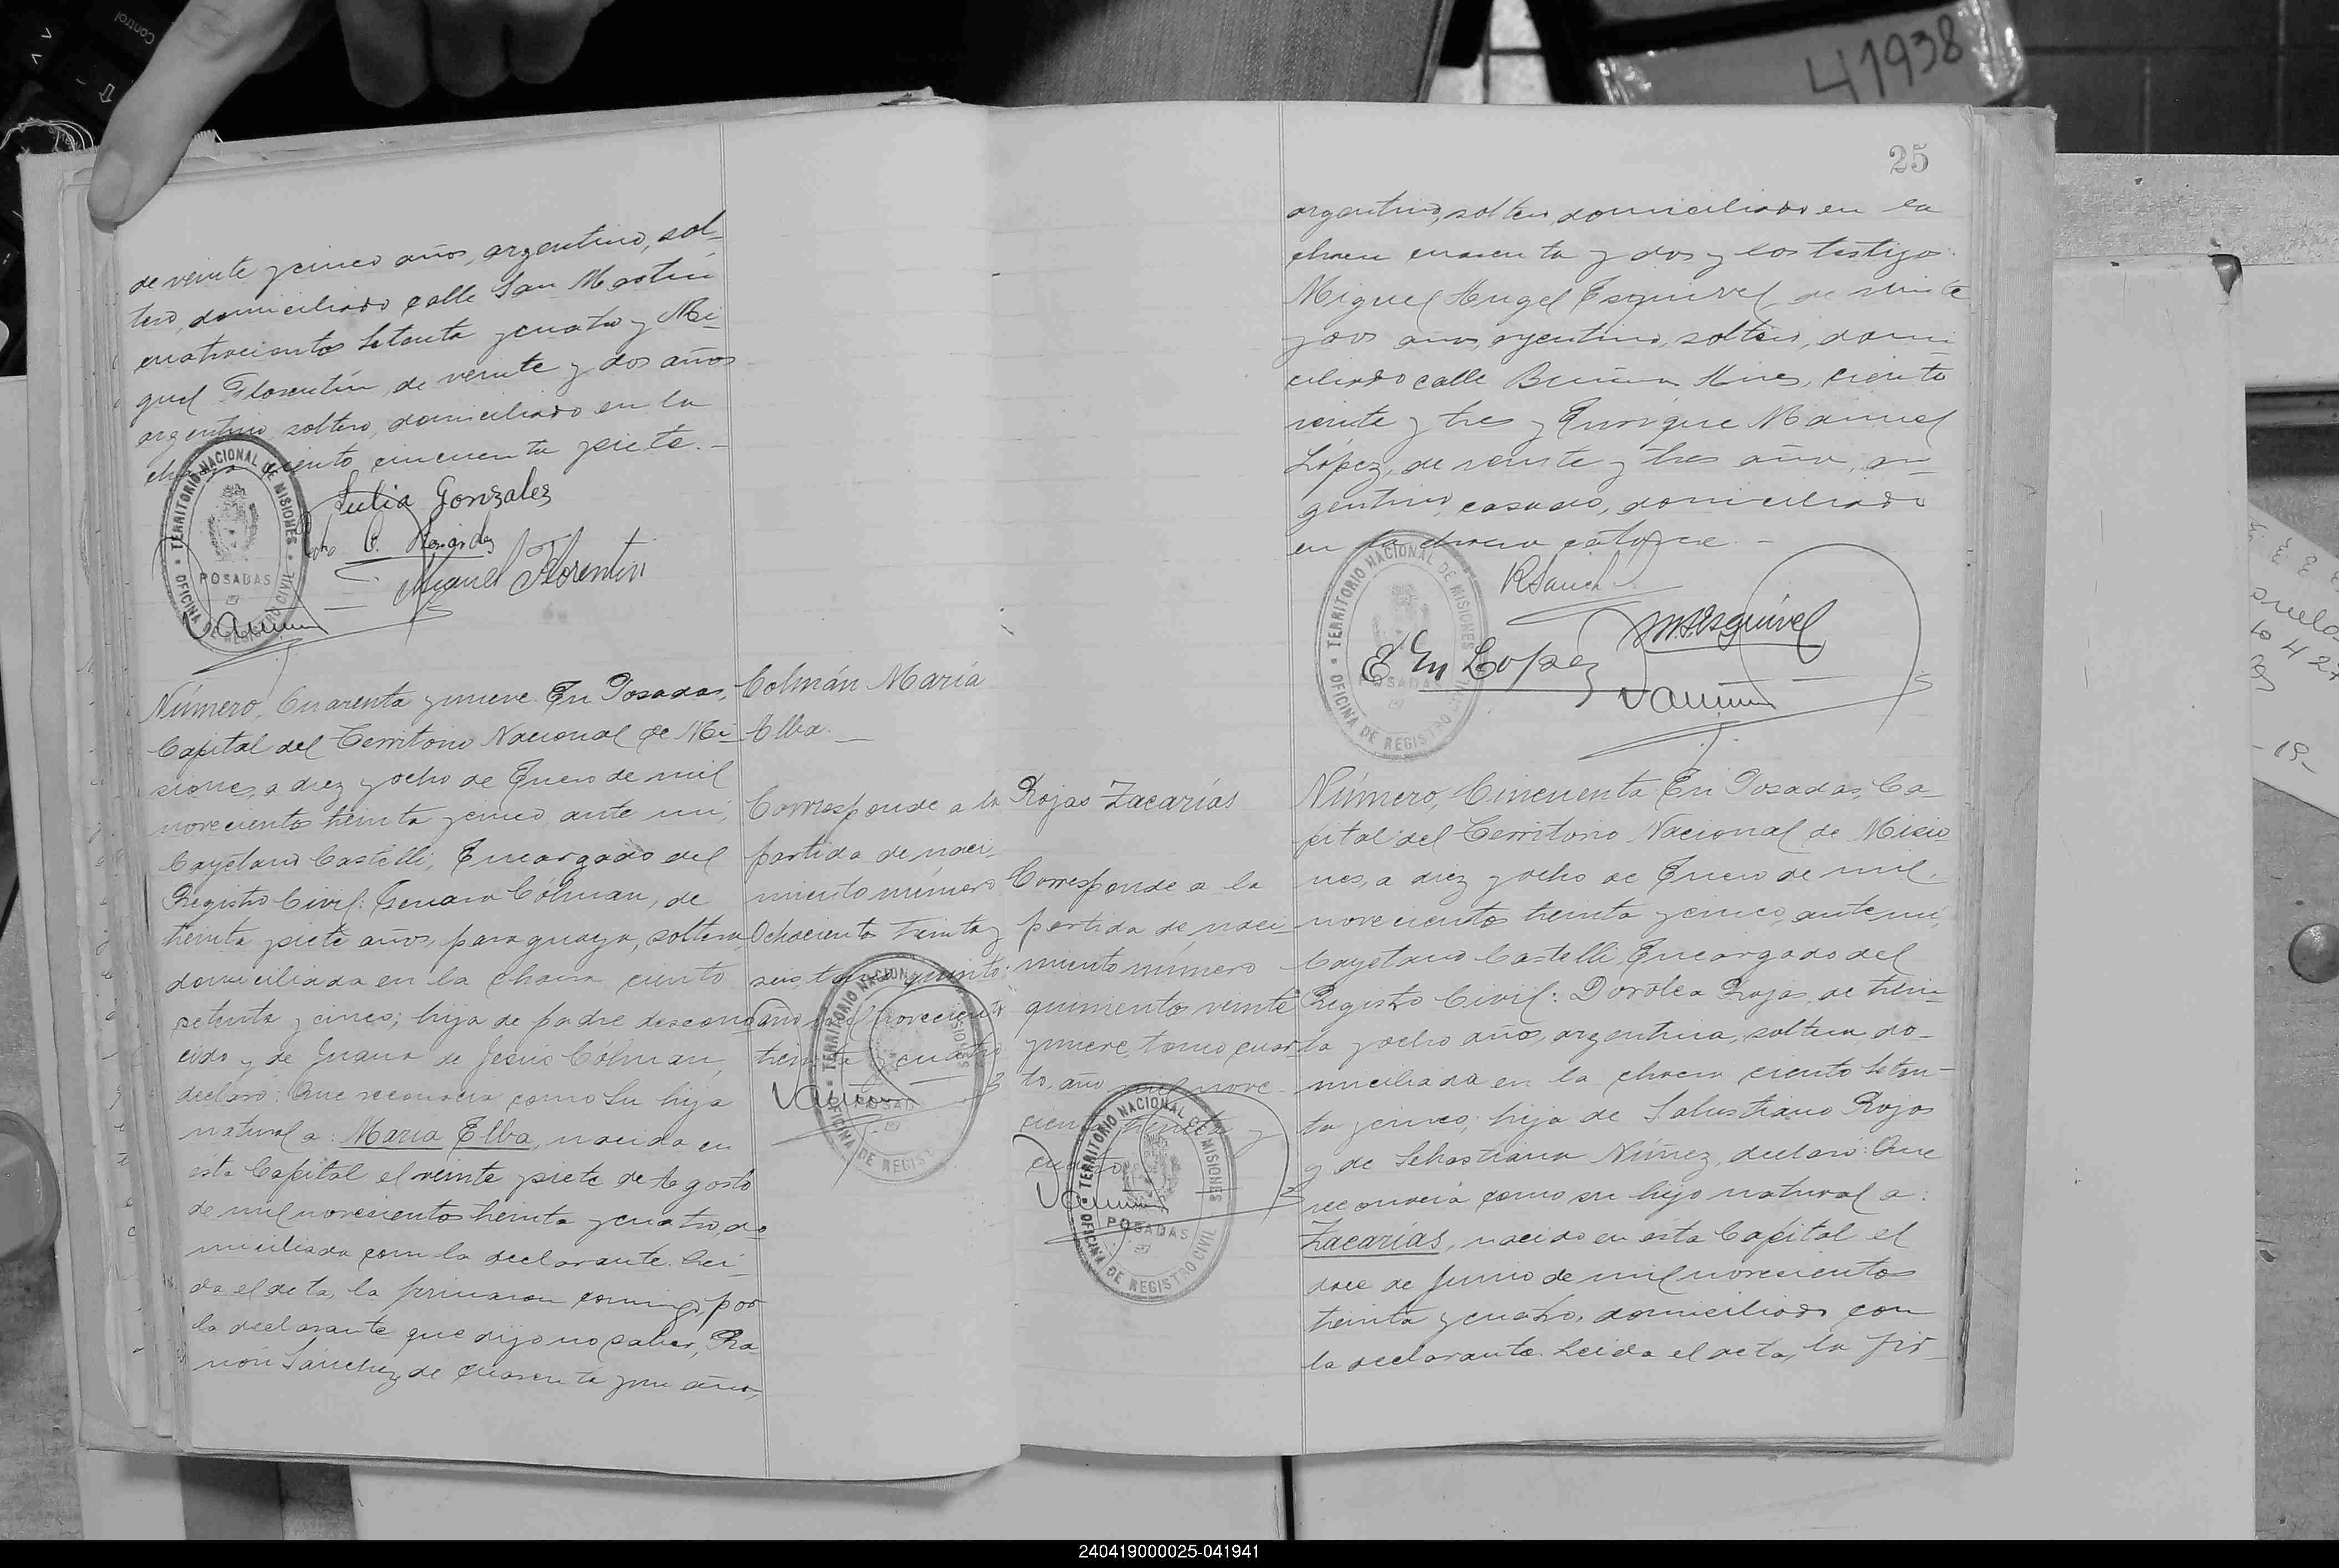 41938
25
de veinte y cinco años, argentino, sol-
tero, domiciliado calle San Martín
cuatrocientos setenta y cuatro y Mi-
guel Florentín, de veinte y dos años
argentino, soltero, domiciliado en la
ciento cincuenta y siete.-
Julia Gonzales
Miguel Florentin
TERRITORIO NACIONAL DE MISIONES
POSADAS
OFICINA DE REGISTRO CIVIL
Número, Cuarenta y nueve. En Posadas,
Capital del Territorio Nacional de Mi-
siones, a diez y ocho de Enero de mil
novecientos treinta y cinco, ante mí,
Cayetano Castelli, Encargado del
Registro Civil: Genara Cólman, de
treinta y siete años, paraguaya, soltera
domiciliada en la chacra ciento
setenta y cinco; hija de padre descono-
cido y de Juana de Jesús Cólman,
declaró: Que reconocía como su hija
natural a: María Elba, nacida en
esta Capital el veinte y siete de Agosto
de mil novecientos treinta y cuatro, do-
miciliada con la declarante. Leí-
da el acta, la firmaron conmigo, por
la declarante que dijo no saber, Ra-
món Sánchez, de cuarenta y un años,
Colmán María
Elba.-
Corresponde a la
partida de naci-
miento número
Ochociento Treinta y
seis tomo quinto.
año mil novecientos
treinta y cuatro
TERRITORIO NACIONAL DE MISIONES
POSADAS
OFICINA DE REGIST
Rojas Zacarías
Corresponde a la
partida de naci-
miento número
quinientos veinte
y nueve, tomo cuar-
to, año mil nove-
cientos treinta y
cuatro
TERRITORIO NACIONAL DE MISIONES
POSADAS
OFICINA DE REGISTRO CIVIL
argentino, soltero, domiciliado en la
chacra cuarenta y dos y los testigos:
Miguel Angel Esquivel, de veinte
y dos años, argentino, soltero, domi-
ciliado calle Buenos Aires, ciento
veinte y tres y Enrique Manuel
López, de veinte y tres años, ar-
gentino, casado, domiciliado
en la chacra catorce.-
RSanch
MAEsquivel
E M Lopez
TERRITORIO NACIONAL DE MISIONES
POSADAS
OFICINA DE REGISTRO CIVIL
Número, Cincuenta. En Posadas, Ca-
pital del Territorio Nacional de Misio-
nes, a diez y ocho de Enero de mil
novecientos treinta y cinco, ante mí,
Cayetano Castelli, Encargado del
Registro Civil: Dorotea Rojas, de trein-
ta y ocho años, argentina, soltera, do-
miciliada en la chacra ciento seten-
ta y cinco; hija de Salustiano Rojas
y de Sebastiana Núñez, declaró: Que
reconocía como su hijo natural a:
Zacarías, nacido en esta Capital el
doce de Junio de mil novecientos
treinta y cuatro, domiciliado con
la declarante. Leída el acta, la fir-
240419000025-041941